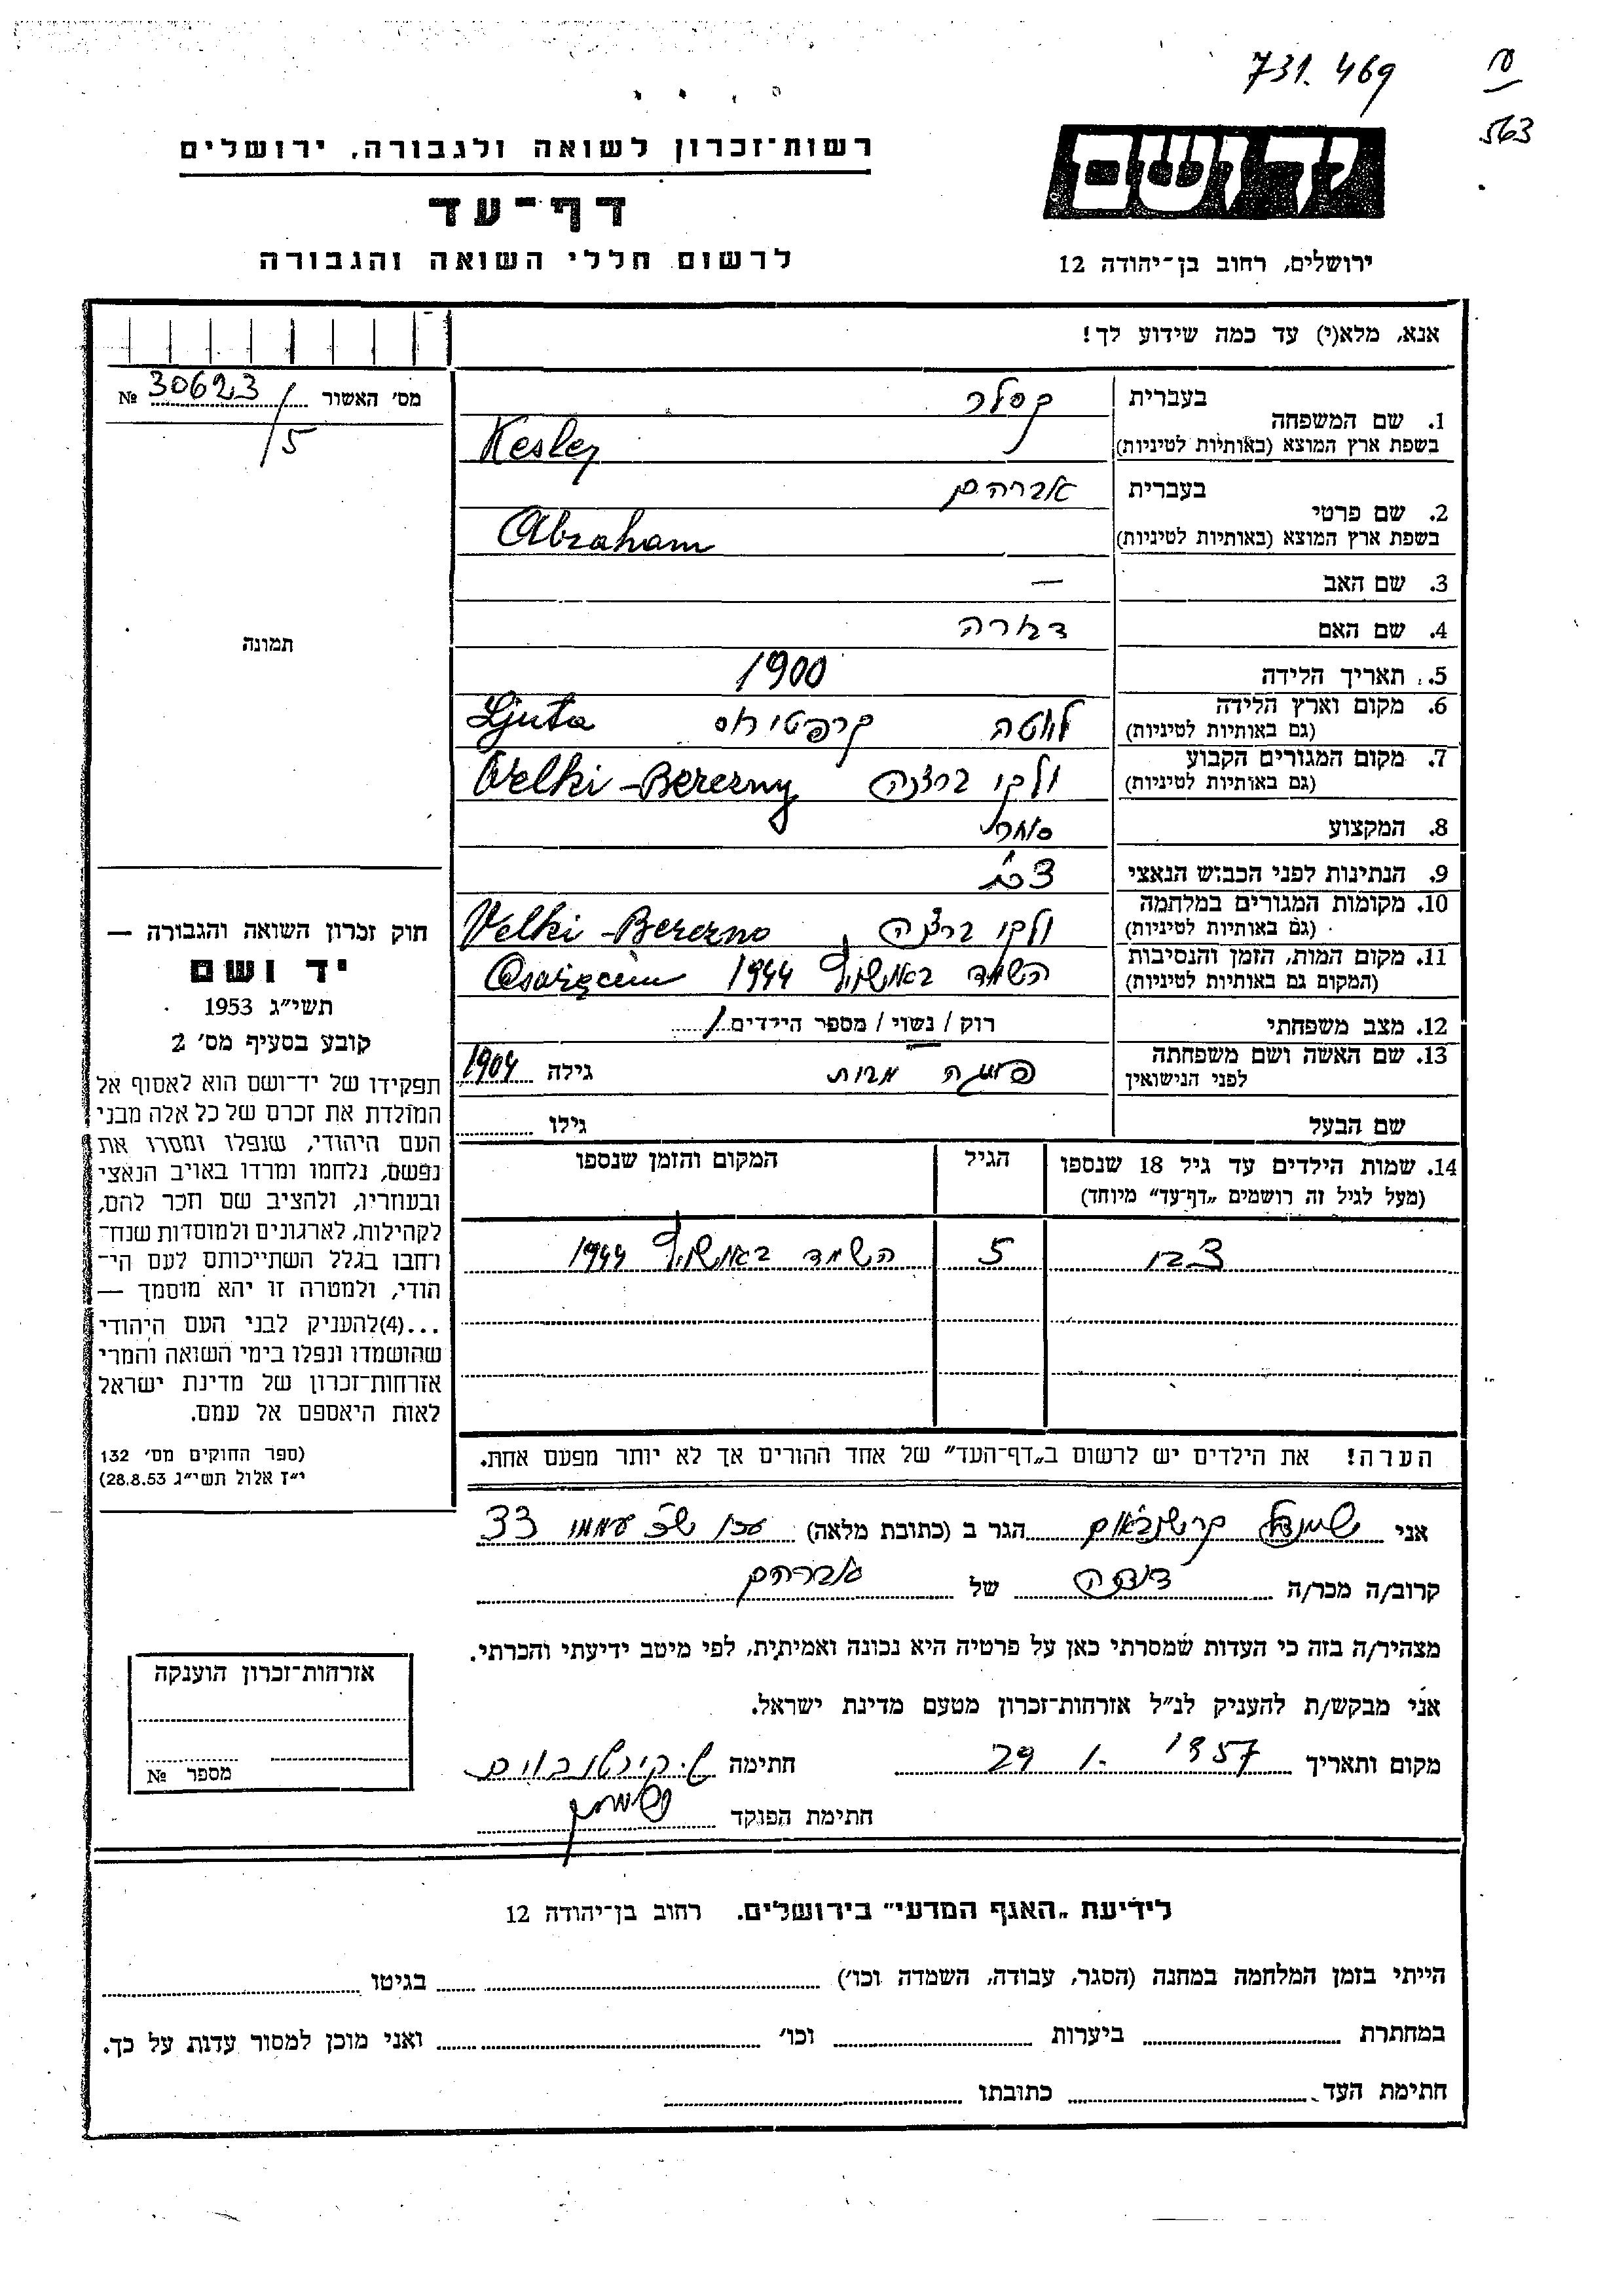 731.469
563
יד ושם
רשות־זכרון לשואה ולגבורה, ירושלים
דף־עד
לרשום חללי השואה והגבורה
ירושלים, רחוב בן־יהודה 12
אנא, מלא(י) עד כמה שידוע לך!
מס׳ האשור 30623/5 №
תמונה
1. שם המשפחה
בעברית קסלר
בשפת ארץ המוצא (באותיות לטיניות) Kesler
2. שם פרטי
בעברית אברהם
בשפת ארץ המוצא (באותיות לטיניות) Abraham
3. שם האב —
4. שם האם
5. תאריך הלידה 1900
6. מקום וארץ הלידה
(גם באותיות לטיניות) לוטה קרפטורוס Ljuta
7. מקום המגורים הקבוע
(גם באותיות לטיניות) ולקי ברזנה Velki-Berezny
8. המקצוע סוחר
9. הנתינות לפני הכבוש הנאצי צכ׳
10. מקומות המגורים במלחמה
(גם באותיות לטיניות) ולקי ברזנה Velki-Berezno
11. מקום המות, הזמן והנסיבות
(המקום גם באותיות לטיניות) השמד באושויץ 1944
12. מצב משפחתי רוק / נשוי / מספר הילדים 1
13. שם האשה ושם משפחתה
לפני הנישואין גילה 1904
שם הבעל גילו
14. שמות הילדים עד גיל 18 שנספו
(מעל לגיל זה רושמים „דף־עד״ מיוחד)
הגיל
המקום והזמן שנספו
5 השמד באושויץ 1944
הערה! את הילדים יש לרשום ב„דף־העד״ של אחד ההורים אך לא יותר מפעם אחת.
חוק זכרון השואה והגבורה —
יד ושם
תשי״ג 1953
קובע בסעיף מס׳ 2
תפקידו של יד־ושם הוא לאסוף אל
המולדת את זכרם של כל אלה מבני
העם היהודי, שנפלו ומסרו את
נפשם, נלחמו ומרדו באויב הנאצי
ובעוזריו, ולהציב שם וזכר להם,
לקהילות, לארגונים ולמוסדות שנח־
רחבו בגלל השתייכותם לעם הי־
הודי, ולמטרה זו יהא מוסמך —
...(4)להעניק לבני העם היהודי
שהושמדו ונפלו בימי השואה והמרי
אזרחות־זכרון של מדינת ישראל
לאות היאספם אל עמם.
(ספר החוקים מס׳ 132
י״ז אלול תשי״ג 28.8.53)
אני הגר ב (כתובת מלאה) עכו 33
קרוב/ה מכר/ה דודה של אברהם
מצהיר/ה בזה כי העדות שמסרתי כאן על פרטיה היא נכונה ואמיתית, לפי מיטב ידיעתי והכרתי.
אני מבקש/ת להעניק לנ״ל אזרחות־זכרון מטעם מדינת ישראל.
מקום ותאריך 29 1. 1957 חתימה
חתימת הפוקד
אזרחות־זכרון הוענקה
מספר №
לידיעת „האגף המדעי״ בירושלים. רחוב בן־יהודה 12
הייתי בזמן המלחמה במחנה (הסגר, עבודה, השמדה וכו׳) בגיטו
במחתרת ביערות וכו׳ ואני מוכן למסור עדות על כך.
חתימת העד כתובתו